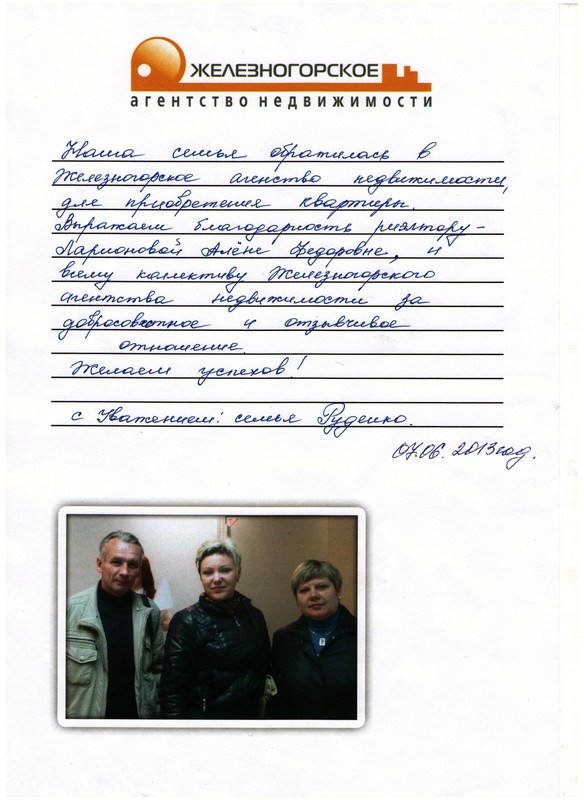 ЖЕЛЕЗНОГОРСКОЕ
агентство недвижимости
Наша семья обратилась в
Железногорское агенство недвижимости,
для приобретения квартиры.
Выражаем благодарность риэлтору -
Ларионовой Алёне Федоровне, и
всему коллективу Железногорского
агентства недвижимости за
добросовестное и отзывчивое
отношение.
Желаем успехов!
с Уважением: семья Руденко.
07.06. 2013 год.